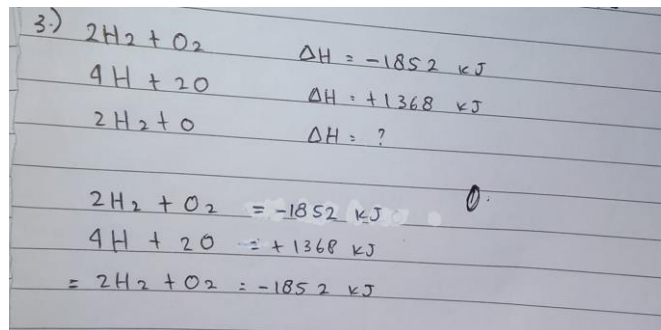 3.) 2H2 + O2 ΔH = -1852 kJ
4H + 2O ΔH = +1368 kJ
2H2 + O ΔH = ?
2H2 + O2 = -1852 kJ
4H + 2O = +1368 kJ
= 2H2 + O2 = -1852 kJ